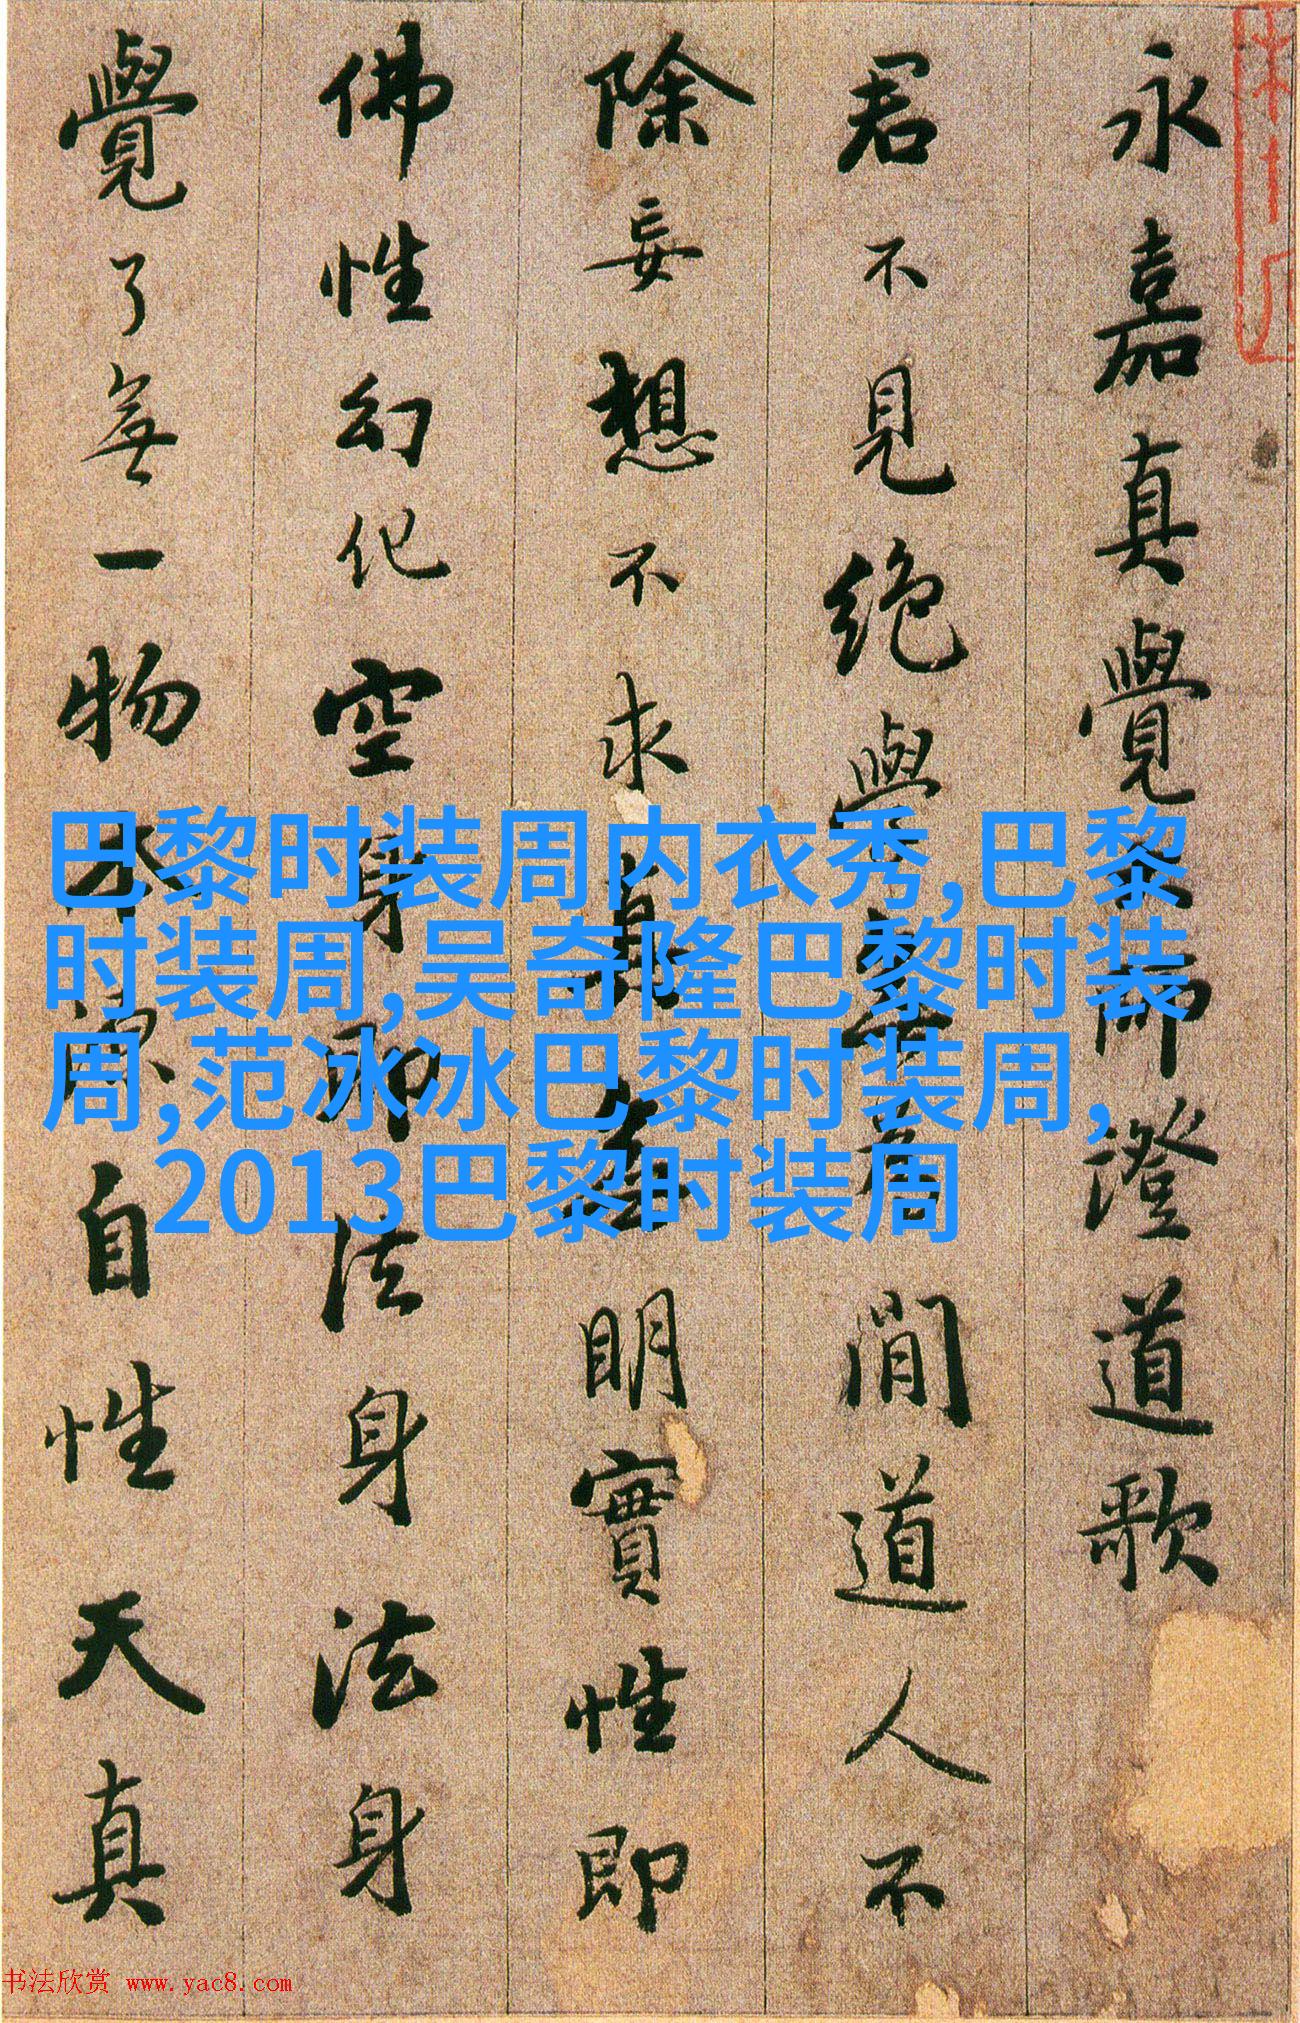 永嘉真覺師澄道歌
君不見絕學閒道人不
除妄想不求真明實性即
佛性幻化空身即法身法身
覺了無一物本源自性天真
巴黎时装周内衣秀,巴黎
时装周,吴奇隆巴黎时装
周,范冰冰巴黎时装周，
2013巴黎时装周
书法欣赏 www.yac8.com